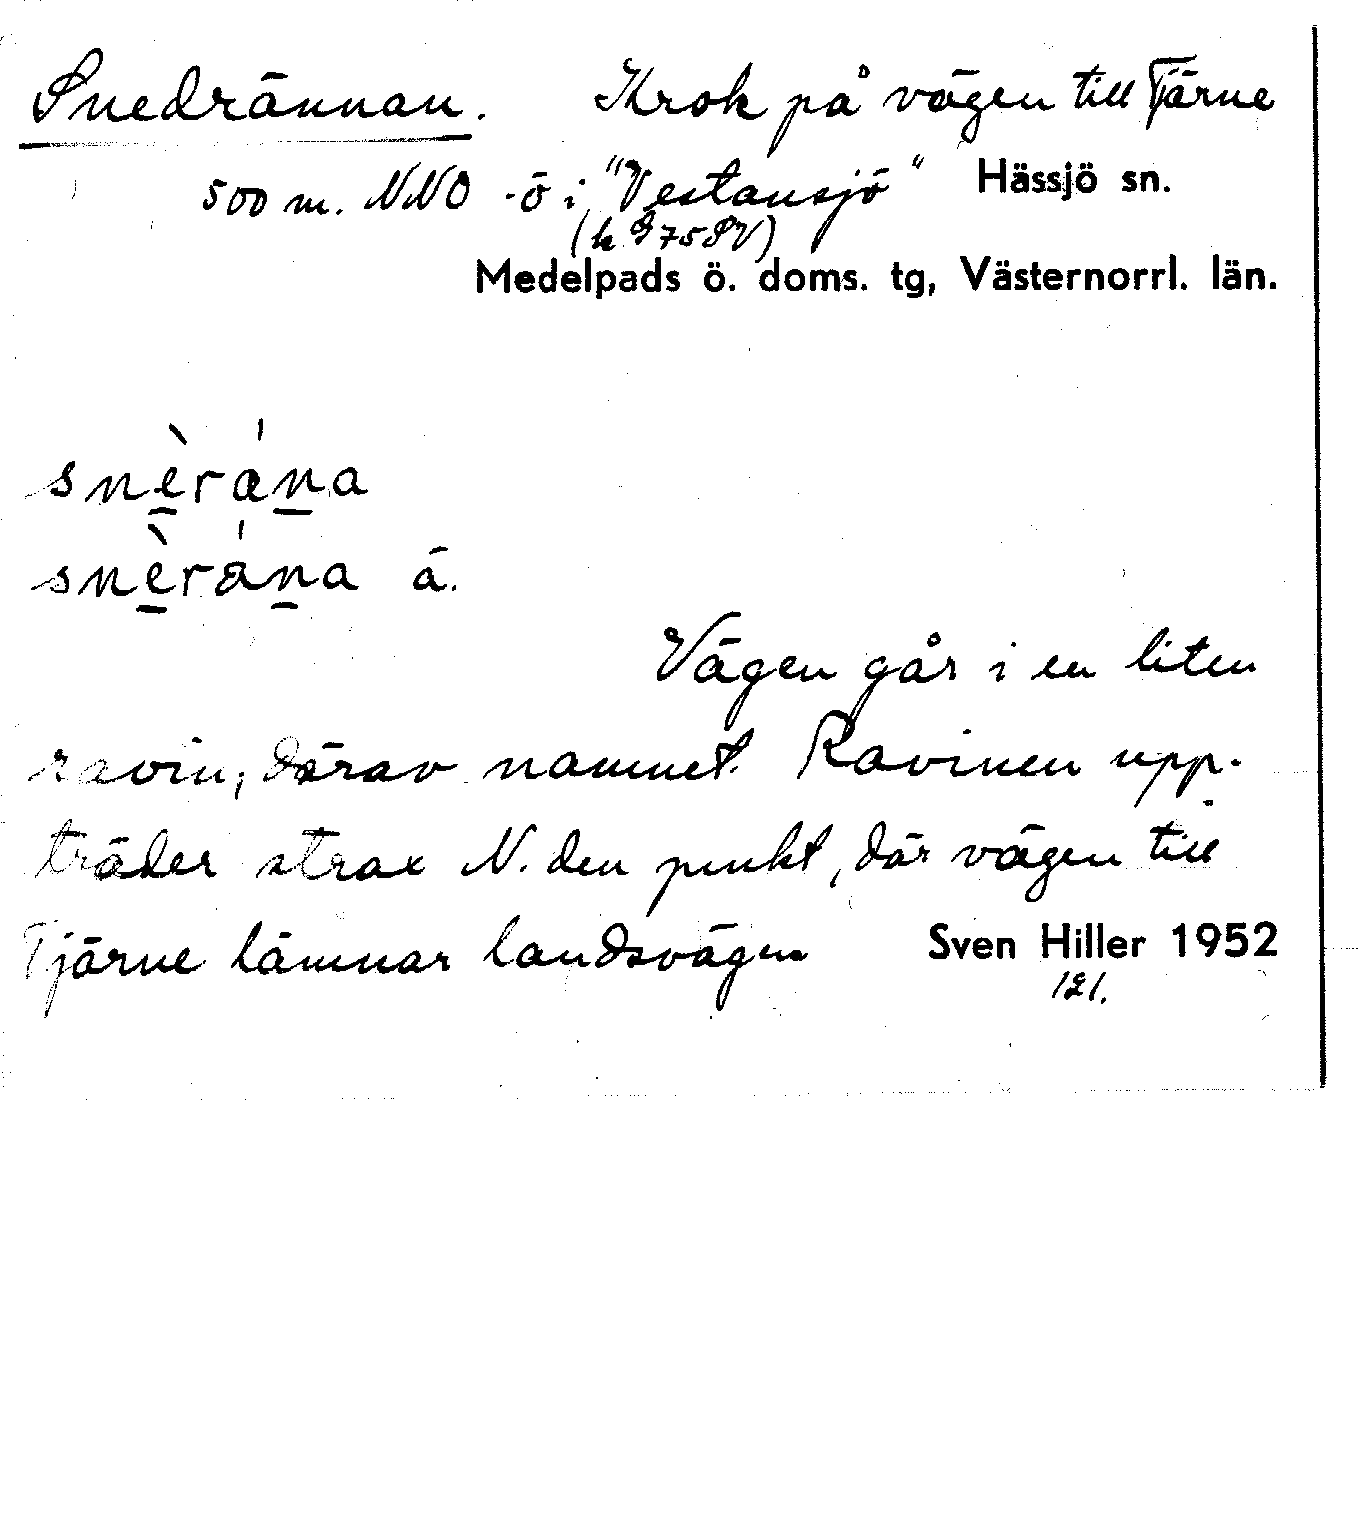 Snedrännan. Krok på vägen till Tjärne
500 m. NNO -ö i "Vestansjö" Hässjö sn.
(k G 75 SV)
Medelpads ö. doms. tg, Västernorrl. län.
snèrána
snèrána ä.
Vägen går i en liten
ravin, därav namnet. Ravinen upp-
träder strax N. den punkt, där vägen till
Tjärne lämnar landsvägen Sven Hiller 1952
121.